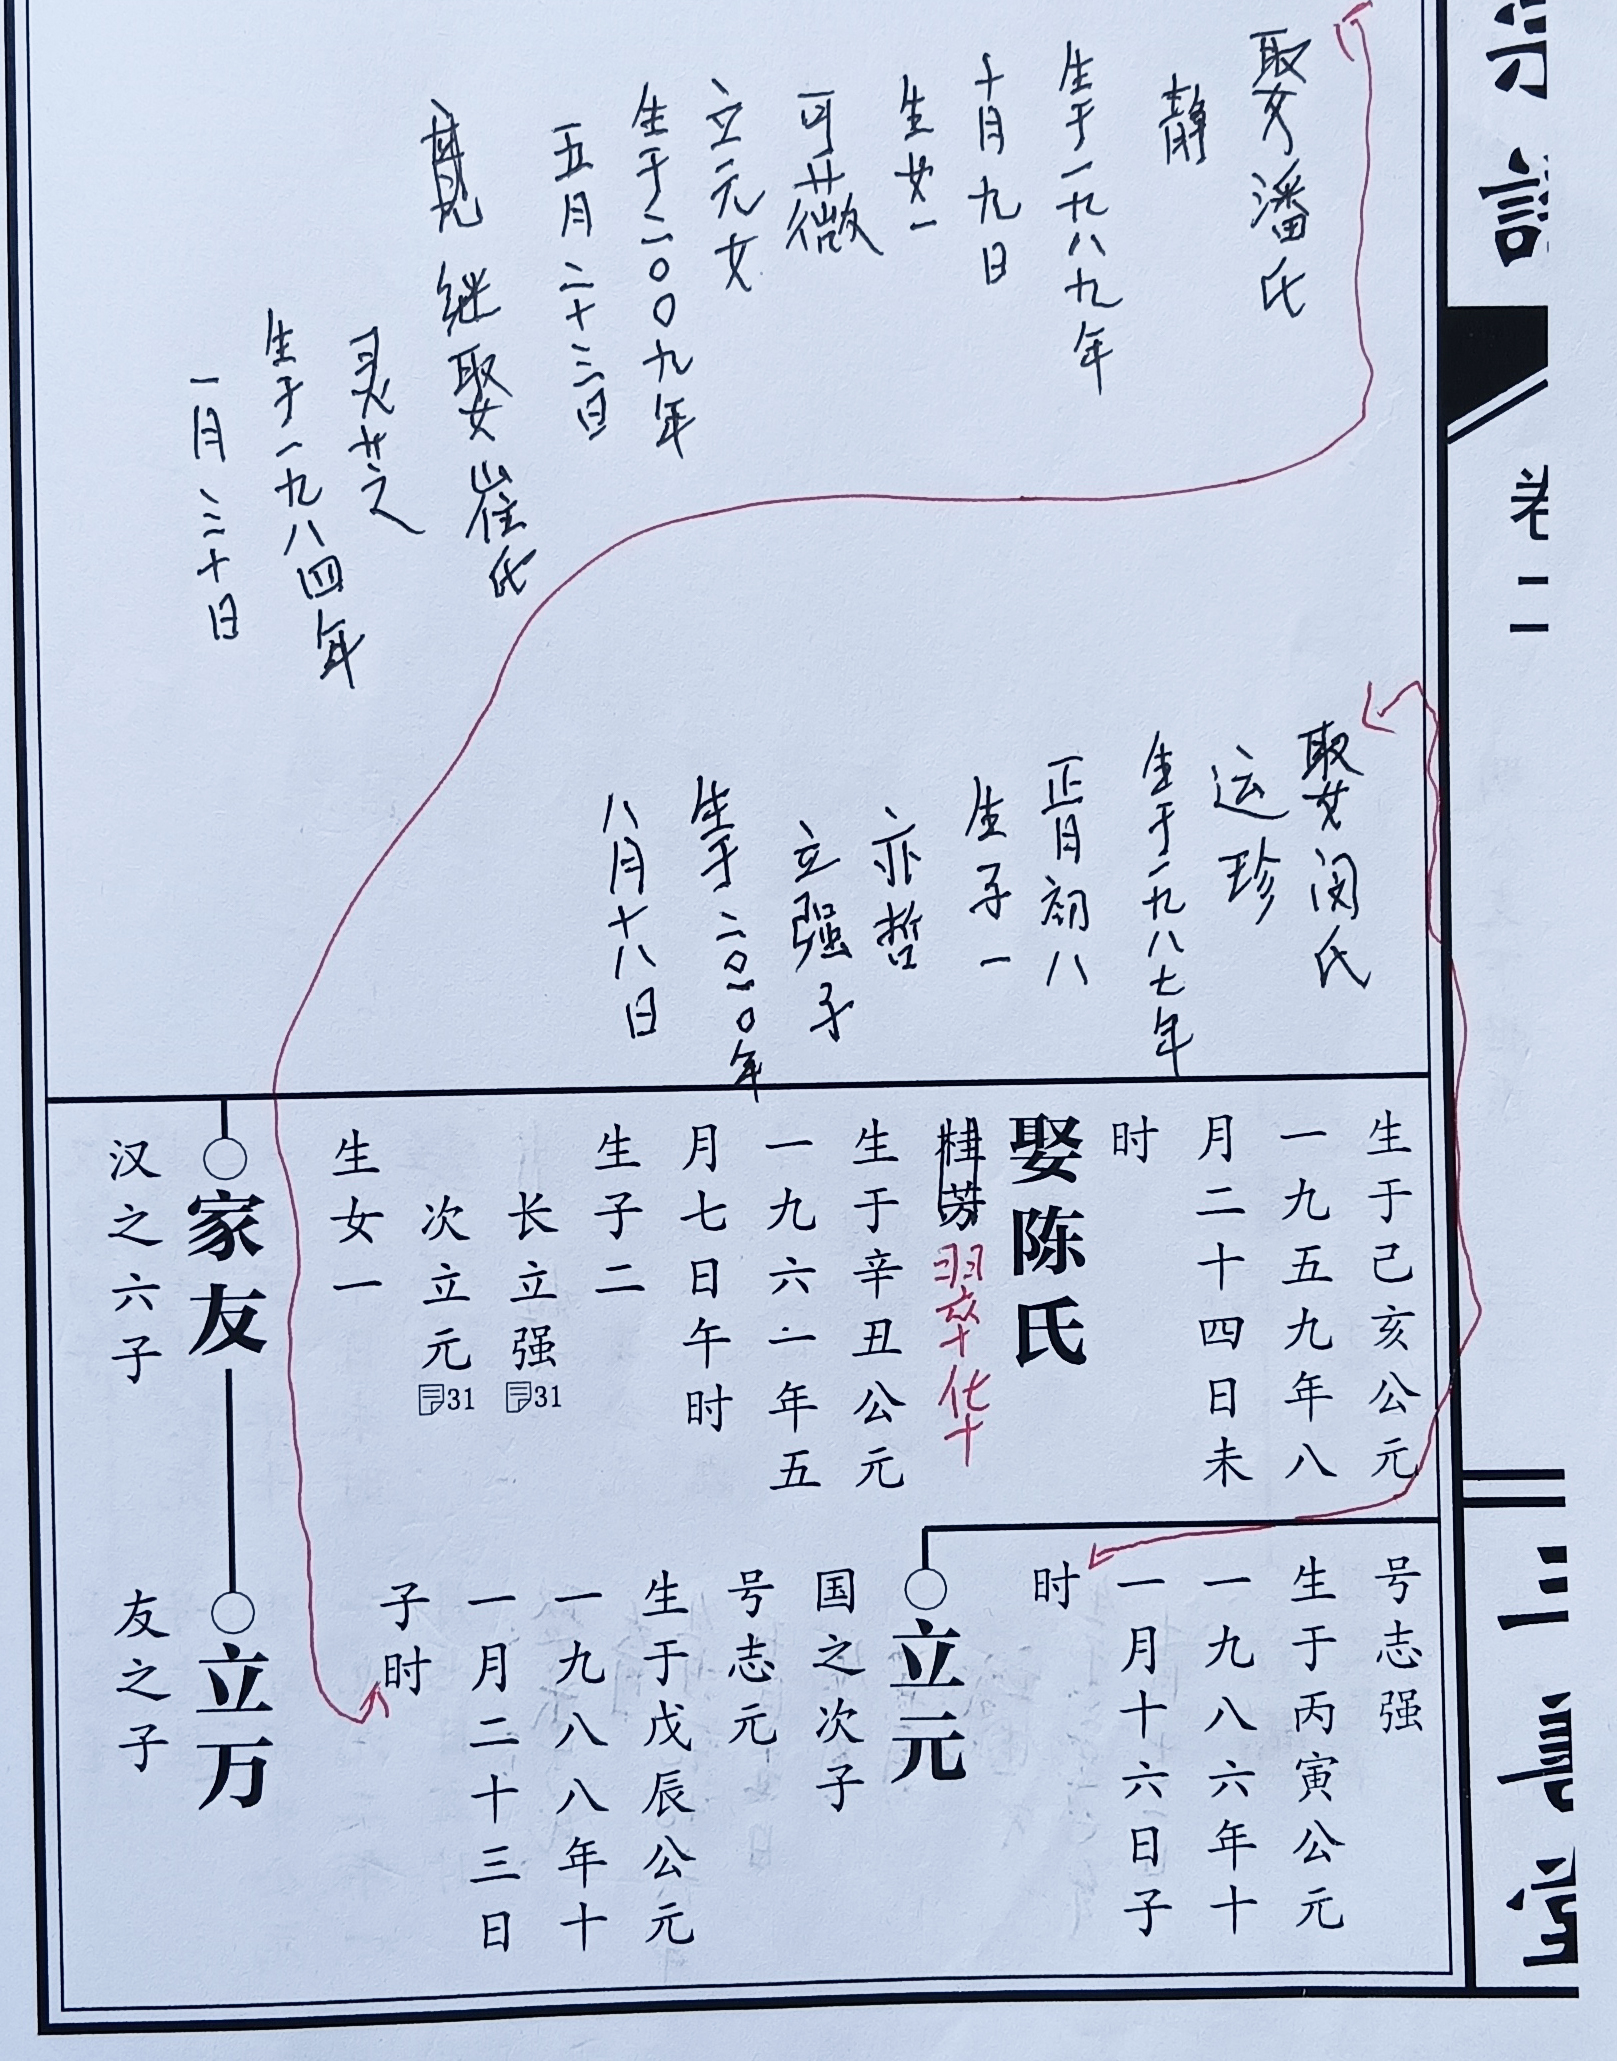 宗谱
卷二
三
堂
娶潘氏
静
生于一九八九年
十月九日
生女一
可薇
立元女
生于二00九年
五月二十三日
继娶崔氏
灵芝
生于一九八四年
一月三十日
娶闵氏
运珍
生于一九八七年
正月初八
生子一
亦哲
立强子
生于二0一0年
八月十八日
生于己亥公元
一九五九年八
月二十四日未
时
娶陈氏
桂芳翠华
生于辛丑公元
一九六一年五
月七日午时
生子二
长立强31
次立元31
生女一
家友
汉之六子
号志强
生于丙寅公元
一九八六年十
一月十六日子
时
立元
国之次子
号志元
生于戊辰公元
一九八八年十
一月二十三日
子时
立万
友之子